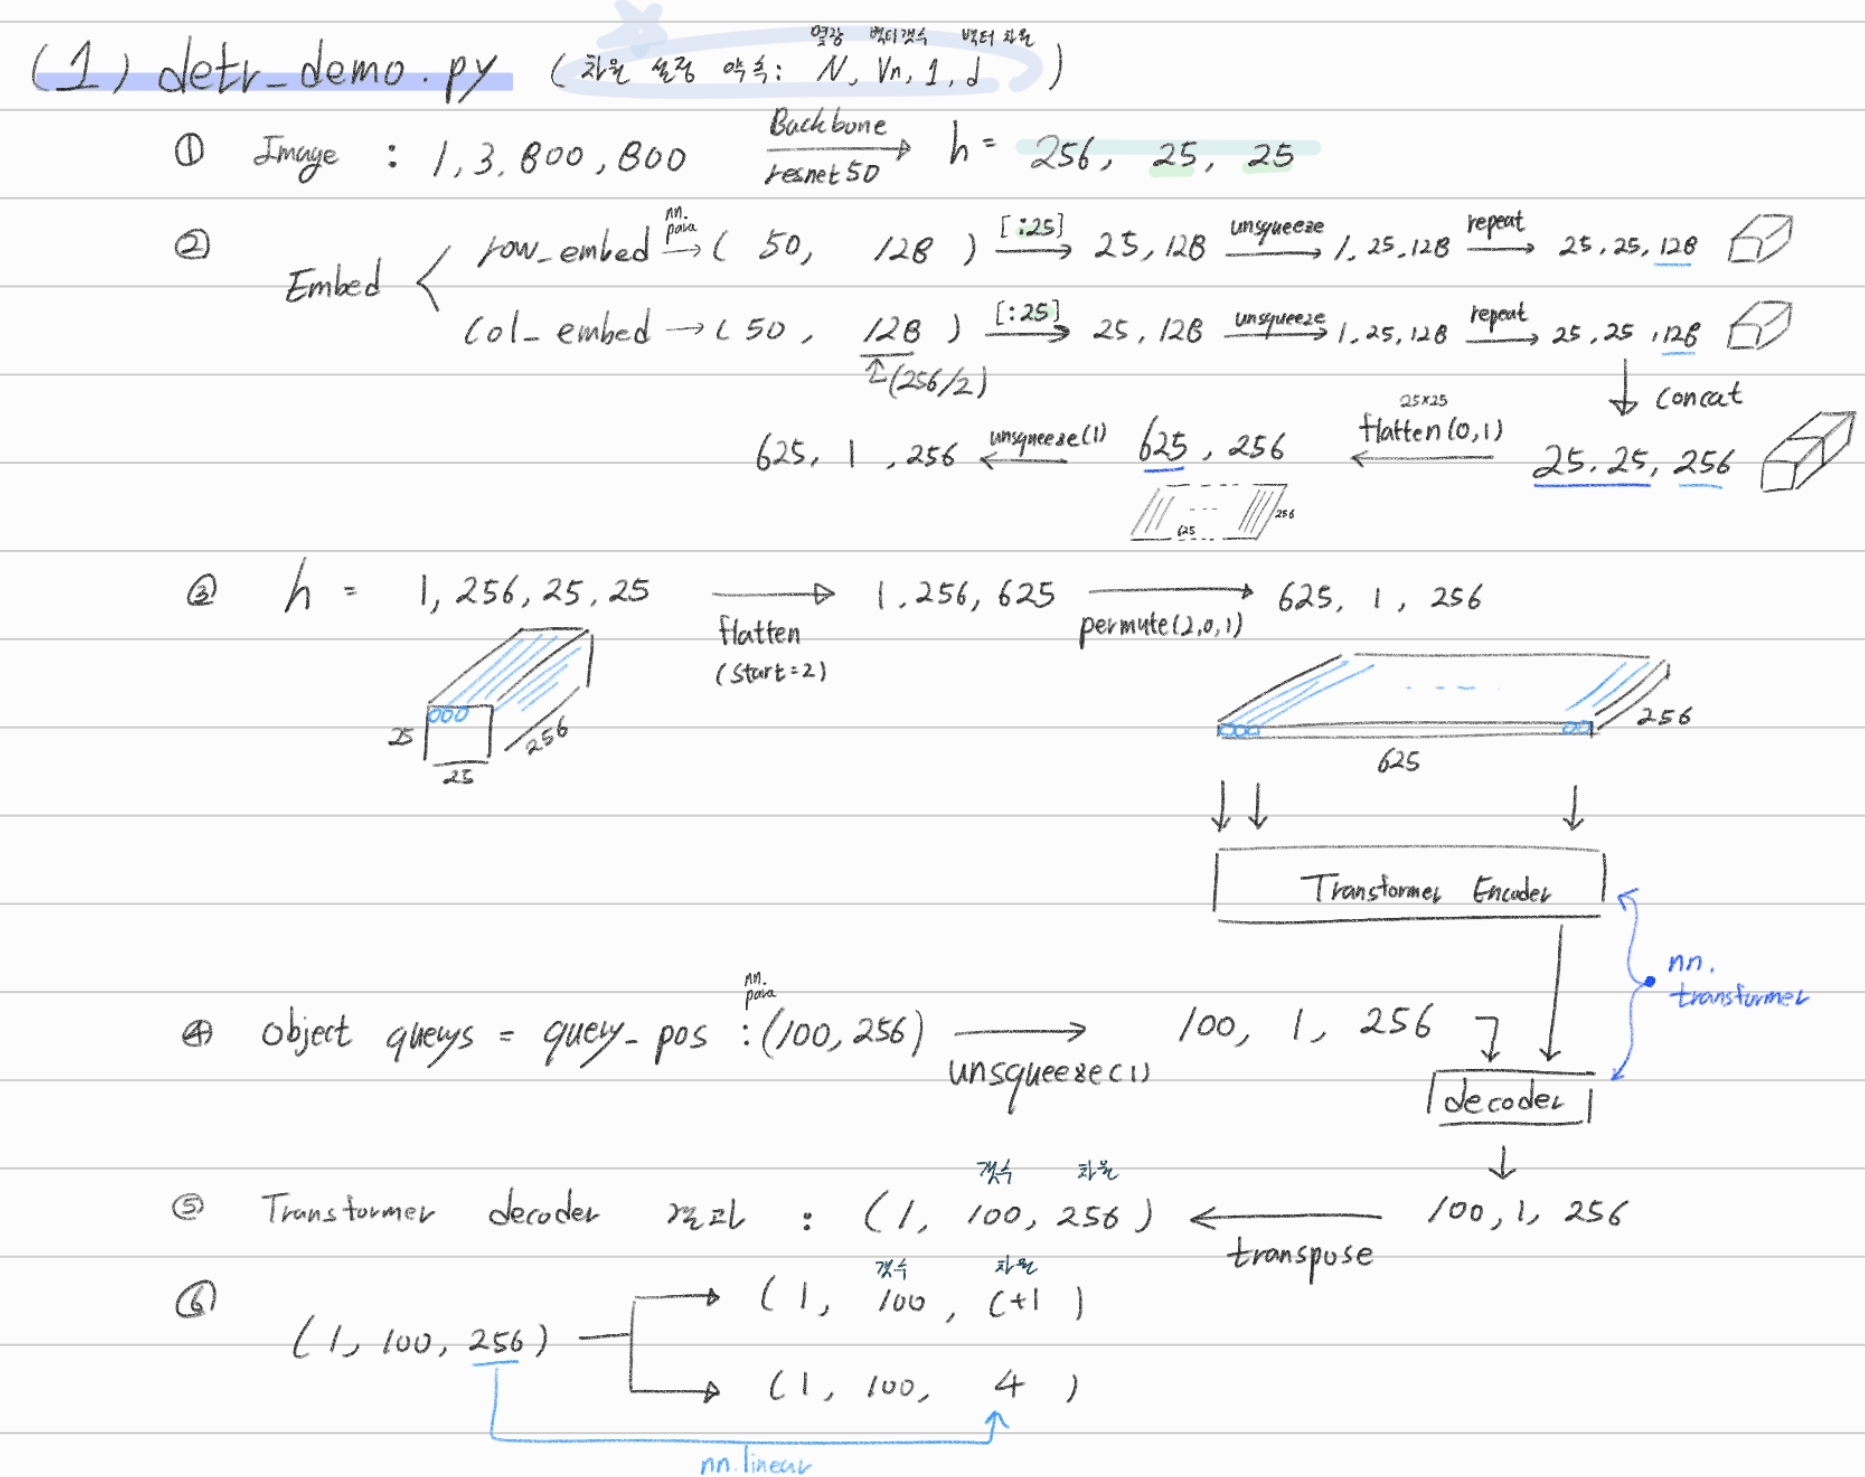 (1) detr_demo.py (차원 설정 약속: N, Vn, 1, d)
벡터갯수 벡터 차원
① Image : 1, 3, 800, 800 Backbone resnet50 → h = 256, 25, 25
② Embed < row_embed nn.para → ( 50, 128 ) [:25] → 25, 128 unsqueeze → 1, 25, 128 repeat → 25, 25, 128
col_embed → ( 50, 128 ) [:25] → 25, 128 unsqueeze → 1, 25, 128 repeat → 25, 25, 128
↑ (256/2)
↓ concat
625, 1, 256 ← unsqueeze(1) 625, 256 ← 25x25 flatten(0,1) 25, 25, 256
625 256
③ h = 1, 256, 25, 25 → flatten (start=2) 1, 256, 625 → permute(2,0,1) 625, 1, 256
25 25 256
625 256
Transformer Encoder
nn.
transformer
④ object querys = query_pos : nn.para (100, 256) → unsqueeze(1) 100, 1, 256
decoder
갯수 차원
⑤ Transformer decoder 결과 : (1, 100, 256) ← transpose 100, 1, 256
갯수 차원
⑥ (1, 100, 256) → (1, 100, C+1)
→ (1, 100, 4)
nn.linear